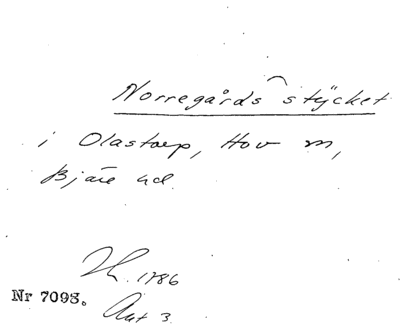 Norregårds stycket
i Olastorp, Hov sn,
Bjäre hd.
1786
Nr 7093.
Akt 3